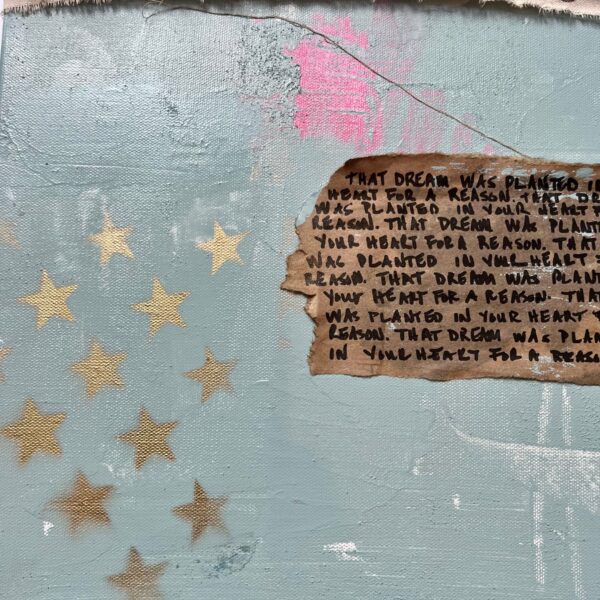 THAT DREAM WAS PLANTED IN
HEART FOR A REASON. THAT DR
WAS PLANTED IN YOUR HEART F
REASON. THAT DREAM WAS PLANT
YOUR HEART FOR A REASON. THAT
WAS PLANTED IN YOUR HEART
REASON. THAT DREAM WAS PLANT
YOUR HEART FOR A REASON. THA
WAS PLANTED IN YOUR HEART
REASON. THAT DREAM WAS PLAN
IN YOUR HEART FOR A REASO